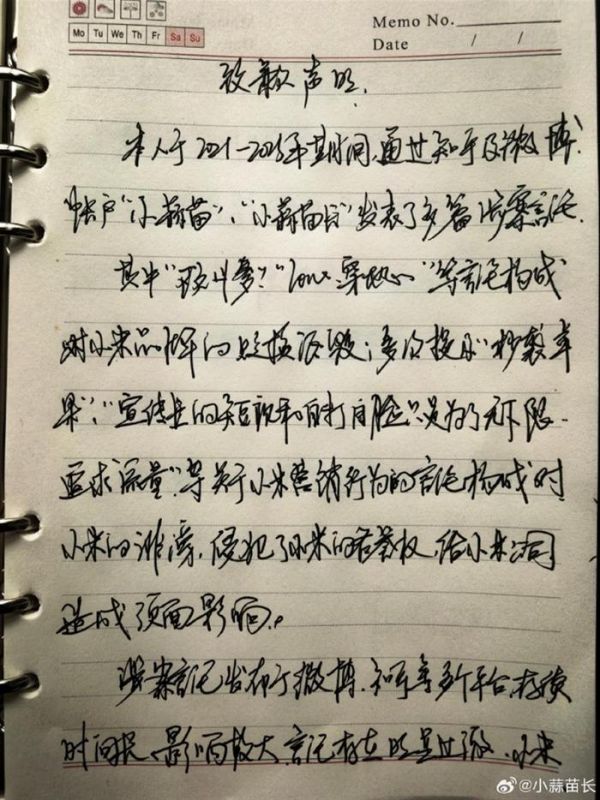 Memo No.
Mo Tu We Th Fr Sa Su
Date / /
致歉声明
本人于2021-2023年期间,通过知乎及微博
帐户"小蒜苗"、"小蒜苗长"发表了多篇涉案言论.
其中""等言论构成
对小米品牌的贬损诋毁;多次提及"抄袭苹
果"、"宣传上的短视和自打自脸只是为了无下限
追求流量"等关于小米营销行为的言论构成对
小米的诽谤,侵犯了小米的名誉权,给小米公司
造成负面影响。
涉案言论发布于微博、知乎等多个平台,存续
时间长、影响放大,言论存在明显过激,小米
@小蒜苗长